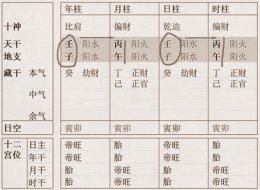 年柱 月柱 日柱 时柱
十神 比肩 偏财 乾造 偏财
天干 壬 阳水 丙 阳火 壬 阳水 丙 阳火
地支 子 阳水 午 阳火 子 阳水 午 阳火
藏干 本气 癸 劫财 丁 正财 癸 劫财 丁 正财
中气 己 正官 己 正官
余气
日空 寅卯 寅卯 寅卯 寅卯
十二宫位 日主 帝旺 胎 帝旺 胎
年干 帝旺 胎 帝旺 胎
月干 胎 帝旺 胎 帝旺
时干 胎 帝旺 胎 帝旺